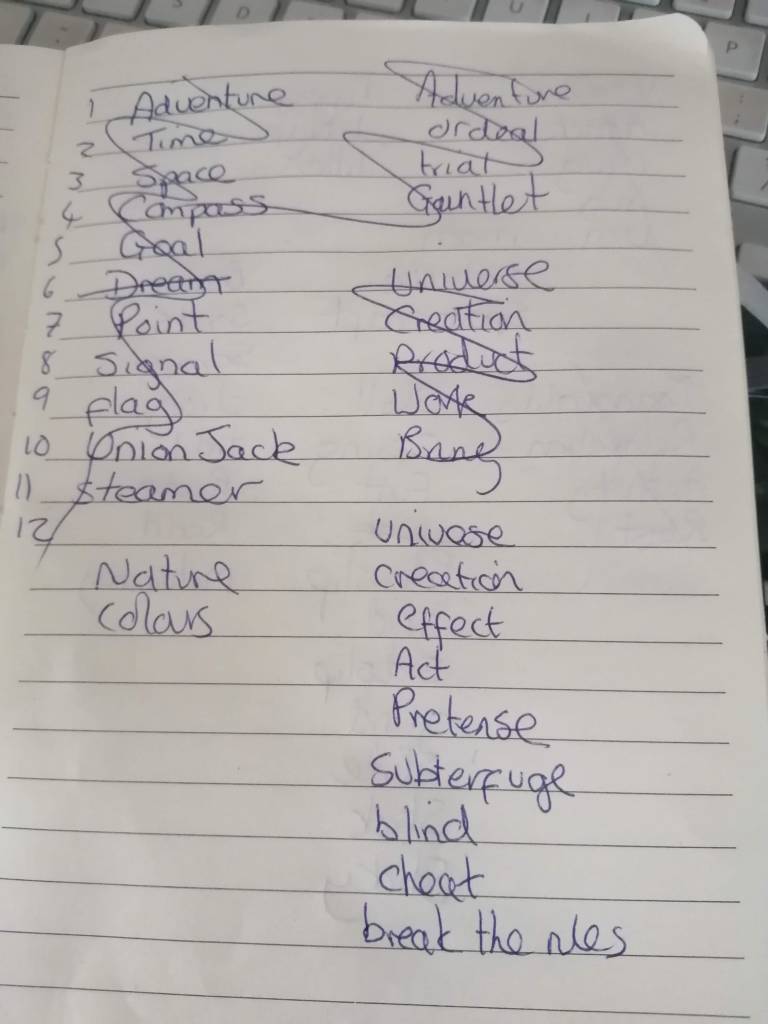 D
U
P
1 Adventure
2 Time
3 Space
4 Compass
5 Goal
6 Dream
7 Point
8 Signal
9 flag
10 Union Jack
11 Steamer
12
Nature
Colours
Adventure
ordeal
trial
Gauntlet
Universe
Creation
Product
Work
Bang
universe
creation
effect
Act
Pretense
Subterfuge
blind
cheat
break the rules